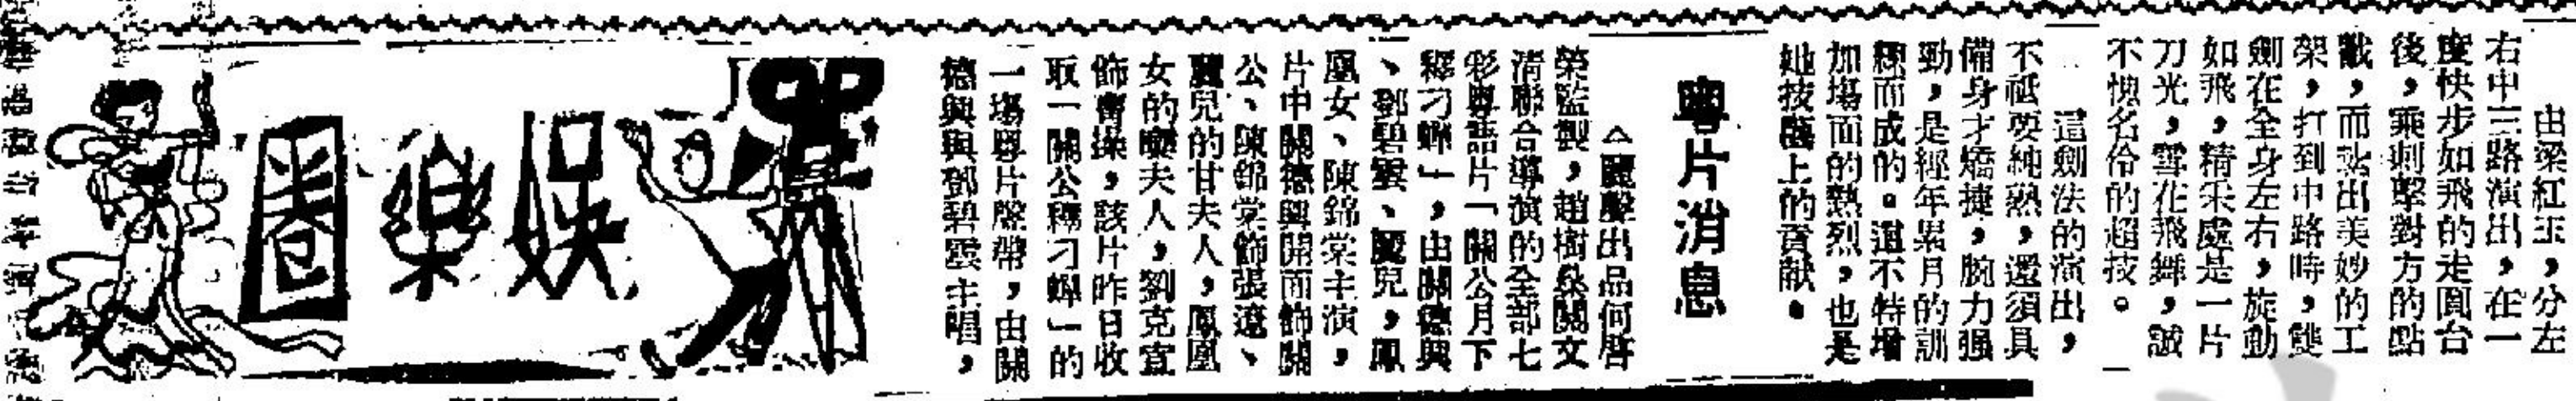 由梁紅玉，分左
右中三路演出，在一
度快步如飛的走圓台
後，乘刺擊對方的點
戳，而紮出美妙的工
架，打到中路時，雙
劍在全身左右，旋動
如飛，精采處是一片
刀光，雪花飛舞，誠
不愧名伶的超技。
這劍法的演出，
不祗要純熟，還須具
備身才矯捷，腕力强
勁，是經年累月的訓
練而成的。這不特增
加場面的熱烈，也是
她技藝上的貢献。
粵片消息
△麗聲出品何啓
榮監製，趙樹燊關文
清聯合導演的全部七
彩粵語片「關公月下
釋刁蟬」，由關德興
、鄧碧雲、麗兒，鳳
凰女、陳錦棠主演，
片中關德興開面飾關
公、陳錦棠飾張遼、
麗兒的甘夫人，鳳凰
女的糜夫人，劉克宣
飾曹操，該片昨日收
取一關公釋刁蟬」的
一塲粵片聲帶，由關
德興與鄧碧雲主唱，
娛樂圈